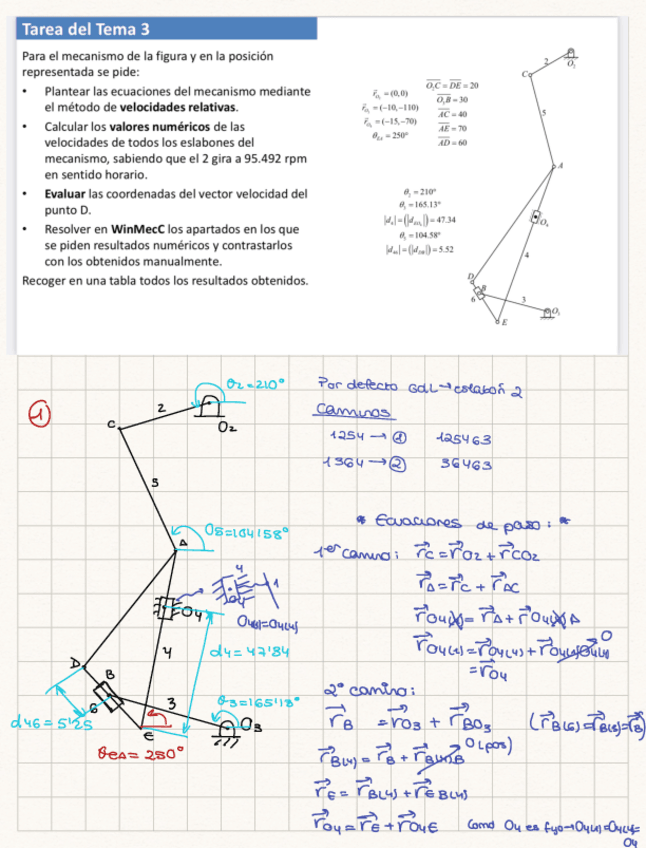 Tarea del Tema 3
Para el mecanismo de la figura y en la posición
representada se pide:
• Plantear las ecuaciones del mecanismo mediante
el método de velocidades relativas.
• Calcular los valores numéricos de las
velocidades de todos los eslabones del
mecanismo, sabiendo que el 2 gira a 95.492 rpm
en sentido horario.
• Evaluar las coordenadas del vector velocidad del
punto D.
• Resolver en WinMecC los apartados en los que
se piden resultados numéricos y contrastarlos
con los obtenidos manualmente.
Recoger en una tabla todos los resultados obtenidos.
= (0,0)
= (-10,-110)
= (-15,-70)
= 250°
O₂C = DE = 20
O₃B = 30
AC = 40
AE = 70
AD = 60
θ₂ = 210°
= 165.13°
= 47.34
= 104.58°
= 5.52
2
O₂
C
5
A
O₄
4
D
B
6
3
O₃
E
1
θ2=210°
2
C
O2
5
θ5=104'58°
A
O4
4
D
B
6
3
θ3=165'13°
O3
E
d4=47'84
d46=5'25
θEA=250°
Por defecto GdL→eslabón 2
Caminos
1254 → ① 125463
1364 → ② 36463
* Ecuaciones de paso: *
1er camino: r⃗C = r⃗O2 + r⃗CO2
r⃗A = r⃗C + r⃗AC
= r⃗O4
2º camino:
r⃗B = r⃗O3 + r⃗BO3
r⃗E = r⃗B(4) + r⃗EB(4)
r⃗O4 = r⃗E + r⃗O4E